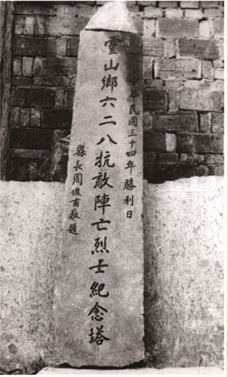 民國三十四年勝利日
靈山鄉六二八抗敵陣亡烈士紀念塔
縣長周俊甫敬題